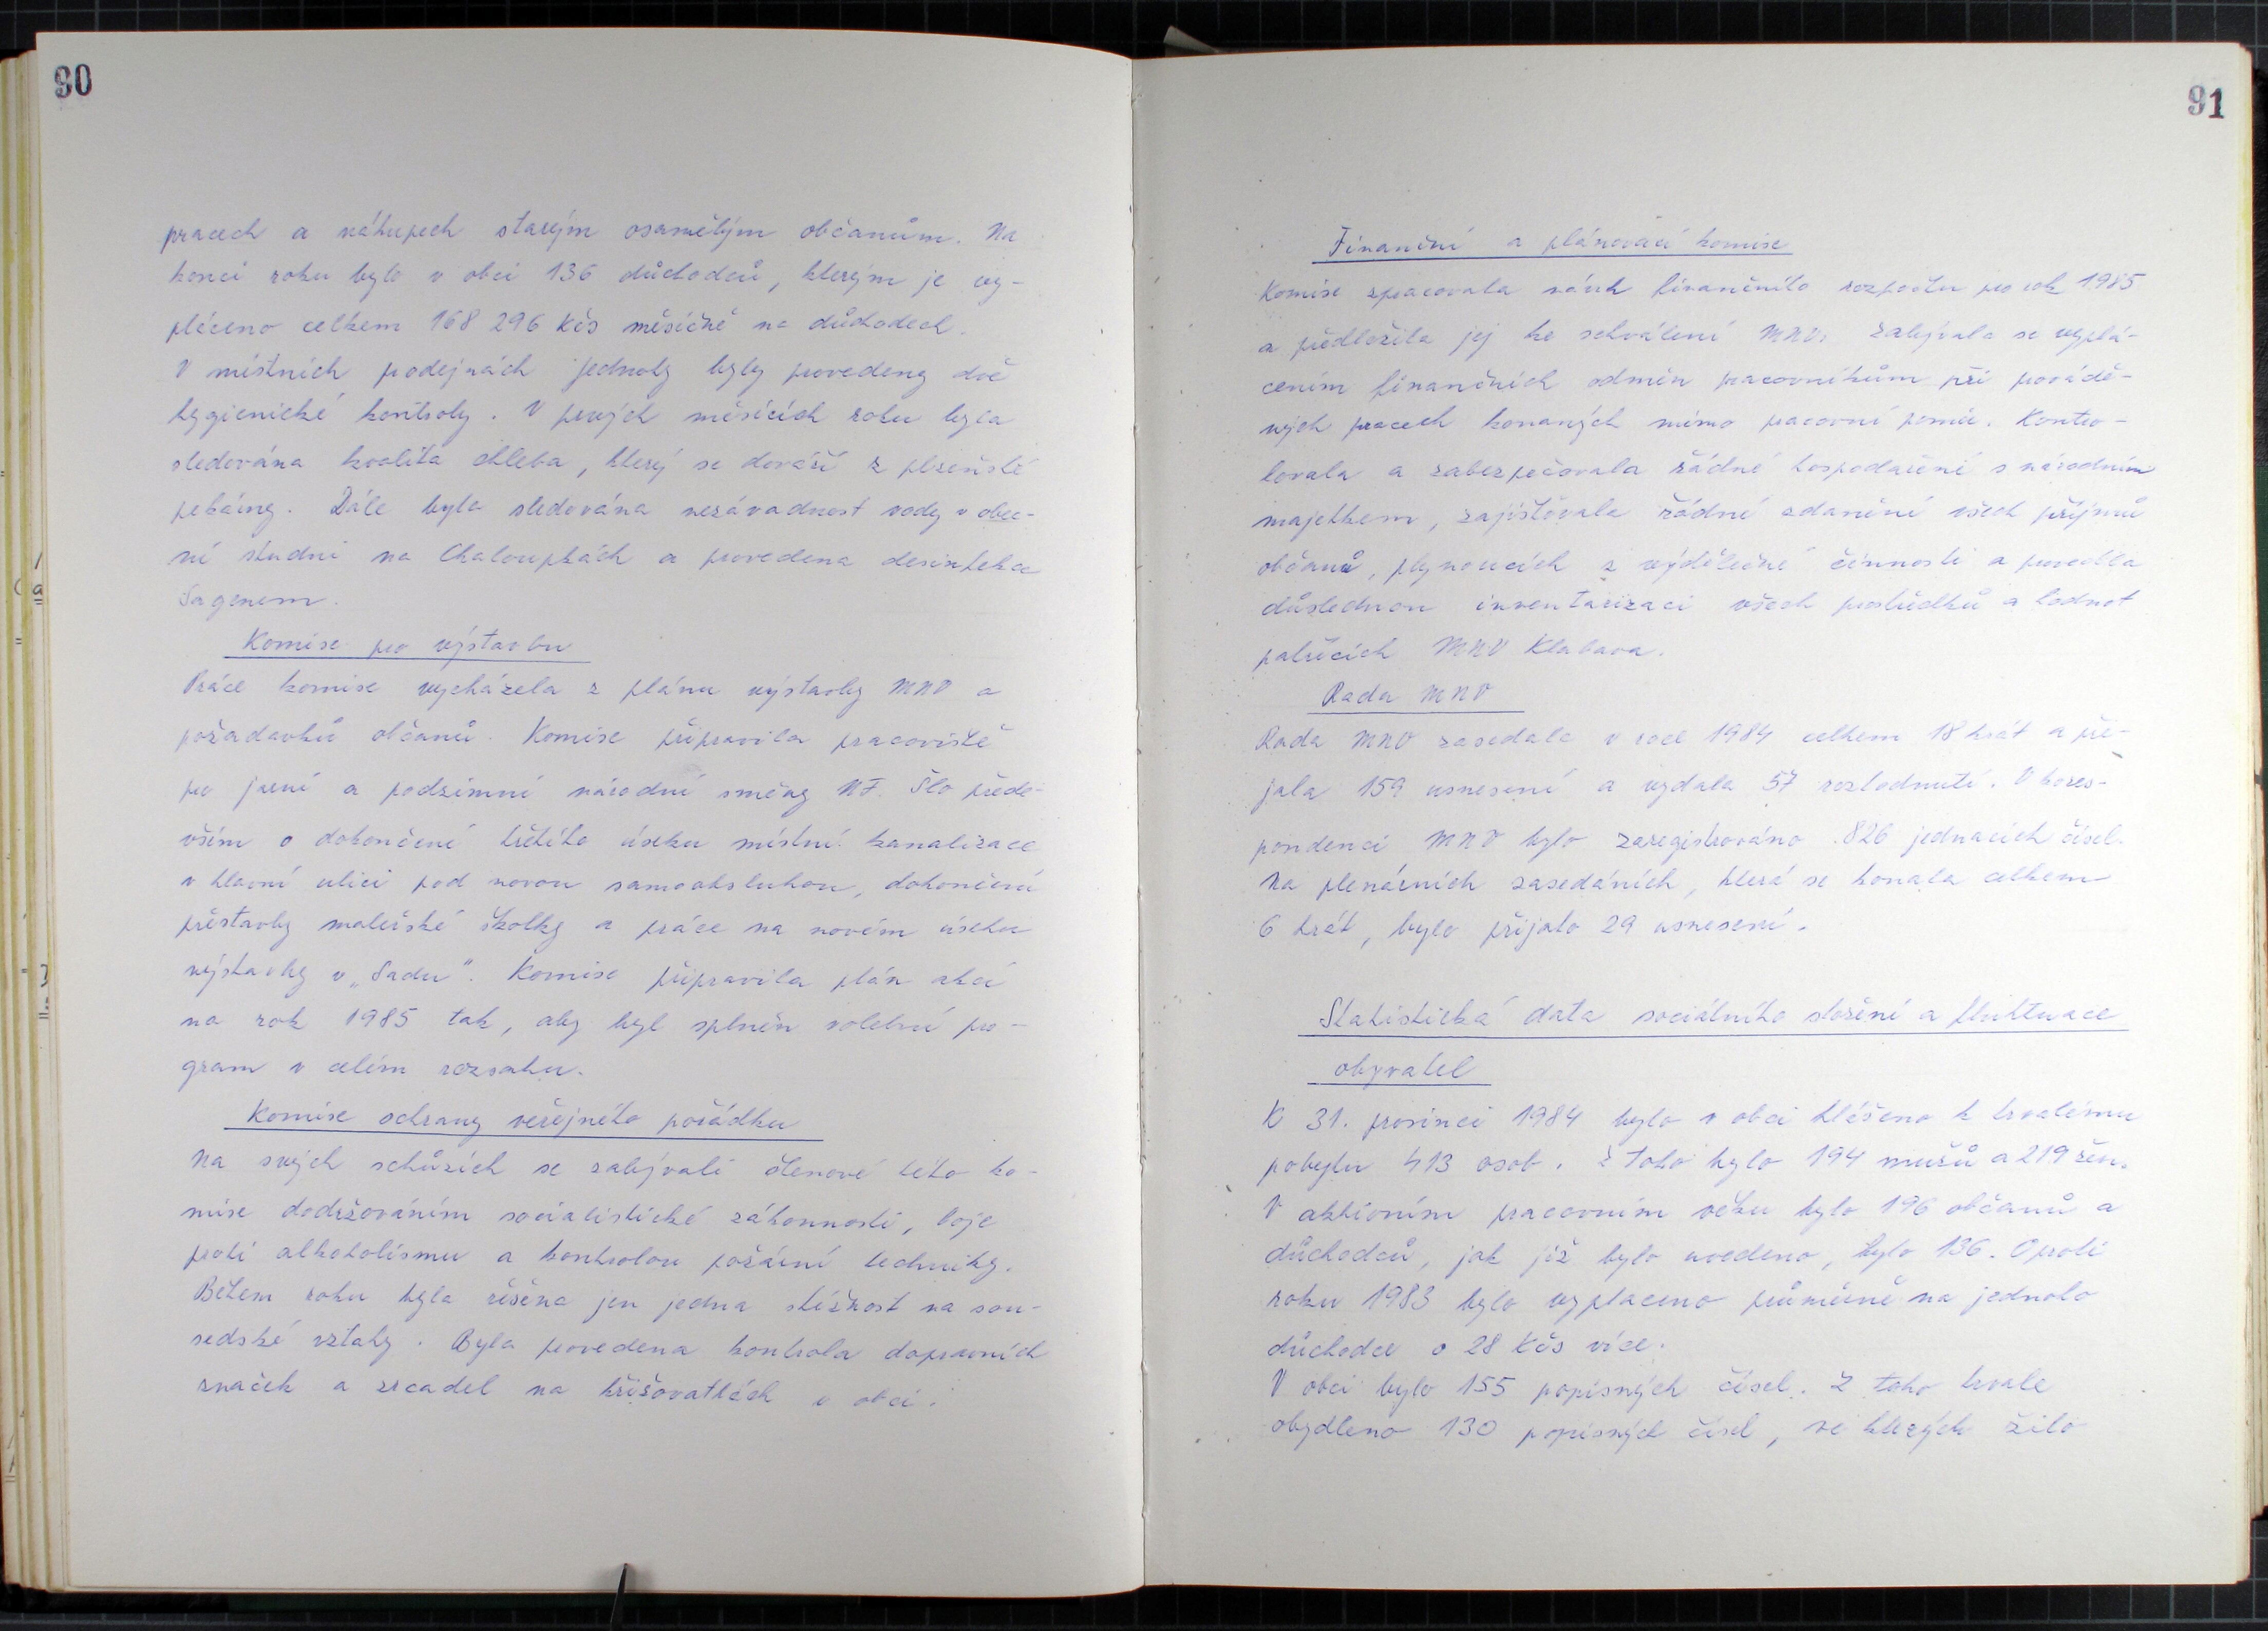 90
pracech a nákupech starým osamělým občanům. Na
konci roku bylo v obci 136 důchodců, kterým je vy-
pláceno celkem 168 296 Kčs měsíčně na důchodech.
V místních prodejnách Jednoty byly provedeny dvě
hygienické kontroly. V prvých měsících roku byla
sledována kvalita chleba, který se dováží z plzeňské
pekárny. Dále byla sledována nezávadnost vody v obec-
ní studni na Chaloupkách a provedena desinfekce
Sagenem.
Komise pro výstavbu
Práce komise vycházela z plánu výstavby MNV a
požadavků občanů. Komise připravila pracoviště
pro jarní a podzimní národní směny NF. Šlo přede-
vším o dokončení třetího úseku místní kanalizace
v hlavní ulici pod novou samoobsluhou, dokončení
přestavby mateřské školky a práce na novém úseku
výstavby v „Sadu". Komise připravila plán akcí
na rok 1985 tak, aby byl splněn volební pro-
gram v celém rozsahu.
Komise ochrany veřejného pořádku
Na svých schůzích se zabývali členové této ko-
mise dodržováním socialistické zákonnosti, boje
proti alkoholismu a kontrolou požární techniky.
Během roku byla řešena jen jedna stížnost na sou-
sedské vztahy. Byla provedena kontrola dopravních
značek a zrcadel na křižovatkách v obci.
91
Finanční a plánovací komise
Komise zpracovala návrh finančního rozpočtu pro rok 1985
a předložila jej ke schválení MNV. Zabývala se vyplá-
cením finančních odměn pracovníkům při prováděných
ných pracech konaných mimo pracovní poměr. Kontro-
lovala a zabezpečovala řádné hospodaření s národním
majetkem, zajišťovala řádné zdanění všech příjmů
občanů, plynoucích z výdělečné činnosti a provedla
důslednou inventarizaci všech prostředků a hodnot
patřících MNV Klabava.
Rada MNV
Rada MNV zasedala v roce 1984 celkem 18 krát a při-
jala 159 usnesení a vydala 57 rozhodnutí. V kores-
pondenci MNV bylo zaregistrováno 826 jednacích čísel.
Na plenárních zasedáních, která se konala celkem
6 krát, bylo přijato 29 usnesení.
Statistická data sociálního složení a fluktuace
obyvatel
K 31. prosinci 1984 bylo v obci hlášeno k trvalému
pobytu 413 osob. Z toho bylo 194 mužů a 219 žen.
V aktivním pracovním věku bylo 196 občanů a
důchodců, jak již bylo uvedeno, bylo 136. Oproti
roku 1983 bylo vyplaceno průměrně na jednoho
důchodce o 28 Kčs více.
V obci bylo 155 popisných čísel. Z toho trvale
obydleno 130 popisných čísel, ve kterých žilo